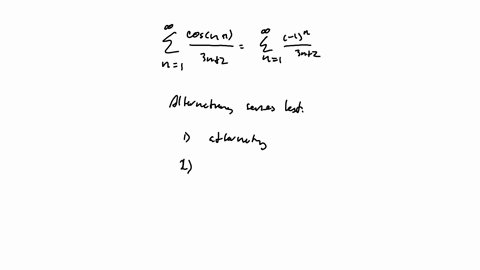 ∞ ∑ n=1 cos(nπ)/3n+2 = ∞ ∑ n=1 (-1)^n/3n+2
Alternating series test:
1) alternating
2)